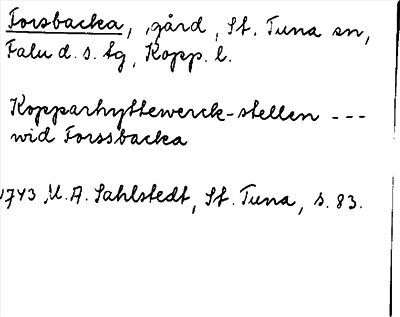 Forsbacka, gård, St. Tuna sn,
Falu d. s. tg, Kopp. l.
Kopparhyttewerck-stellen ---
wid Forssbacka
1743, A. Sahlstedt, St. Tuna, s. 83.